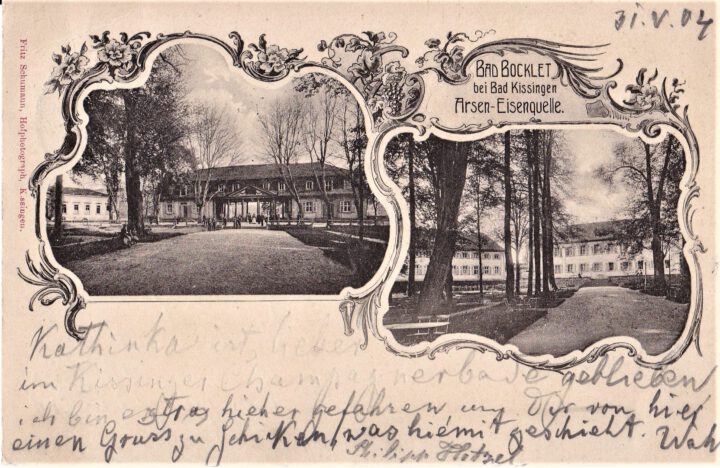 31.V.04
BAD BOCKLET
bei Bad Kissingen
Arsen-Eisenquelle.
Fritz Schumann, Hofphotograph, Kissingen.
Kathinka ist lieber
im Kissinger Champagnerbade geblieben
ich bin extra hieher gefahren um Dir von hier
einen Gruss zu schicken, was hiemit geschieht.
Philipp